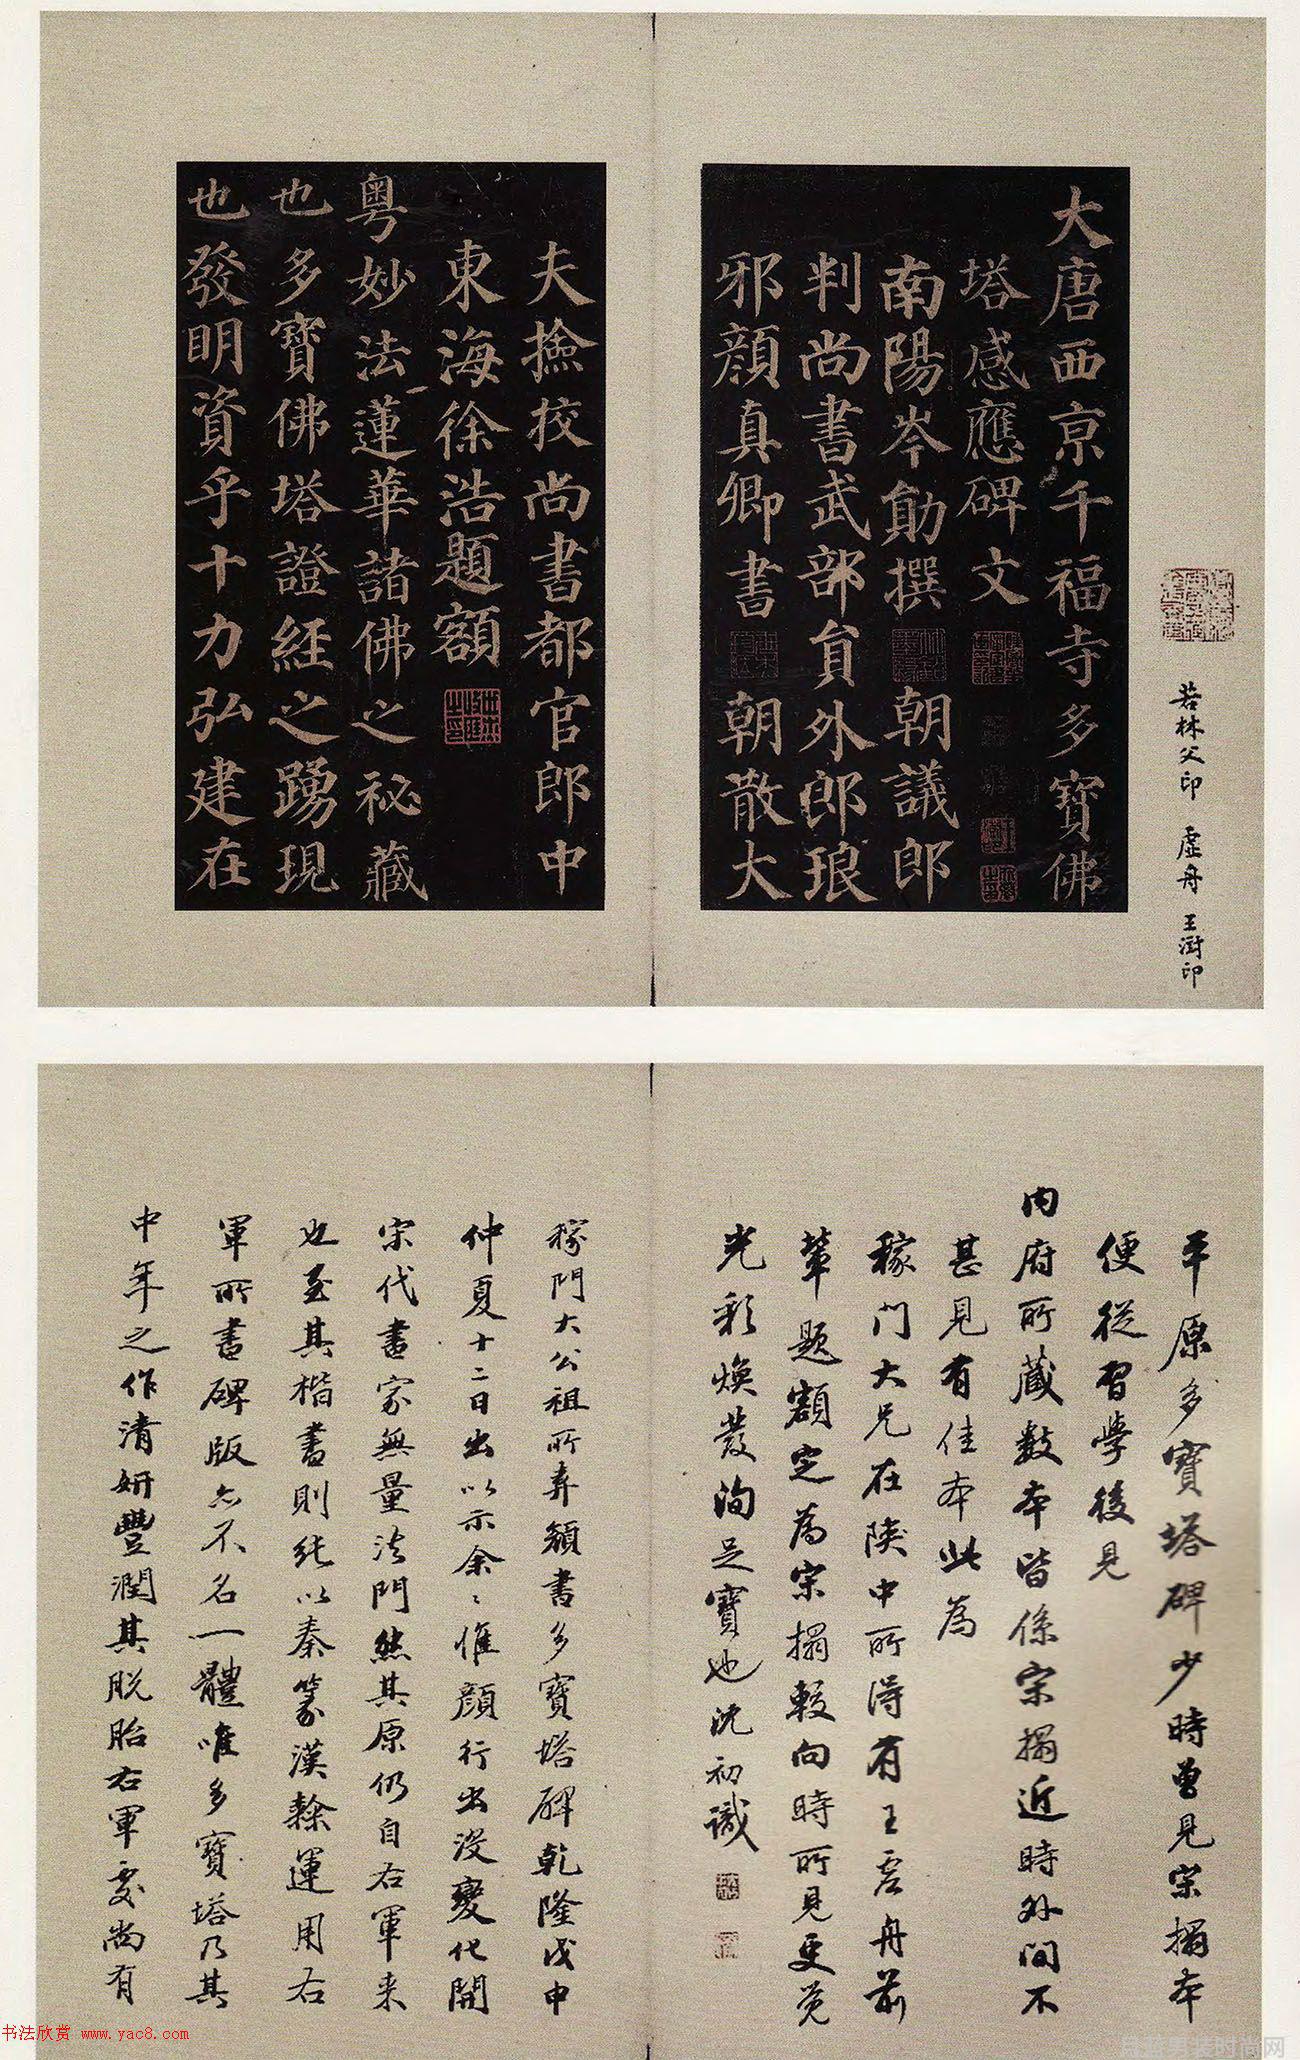 大唐西京千福寺多寶佛
塔感應碑文
南陽岑勛撰 朝議郎
判尚書武部員外郎琅
邪顏真卿書 朝散大
夫撿挍尚書都官郎中
東海徐浩題額
粵妙法蓮華諸佛之祕藏
也多寶佛塔證經之踴現
也發明資乎十力弘建在
若林父印 虛舟 王澍印
平原多寶塔碑少時曾見宋搨本
便從習學後見
內府所藏數本皆係宋搨近時外間不
甚見有佳本此為
稼門大兄在陝中所得有王虛舟前
輩題額定為宋搨較向時所見更覺
光彩煥發洵足寶也沈初識
稼門大公祖所弆顏書多寶塔碑乾隆戊申
仲夏十二日出以示余〻惟顏行出沒變化開
宋代書家無量法門然其原仍自右軍来
也至其楷書則純以秦篆漢隸運用右
軍所書碑版亦不名一體唯多寶塔乃其
中年之作清妍豐潤其脫胎右軍處尚有
书法欣赏 www.yac8.com